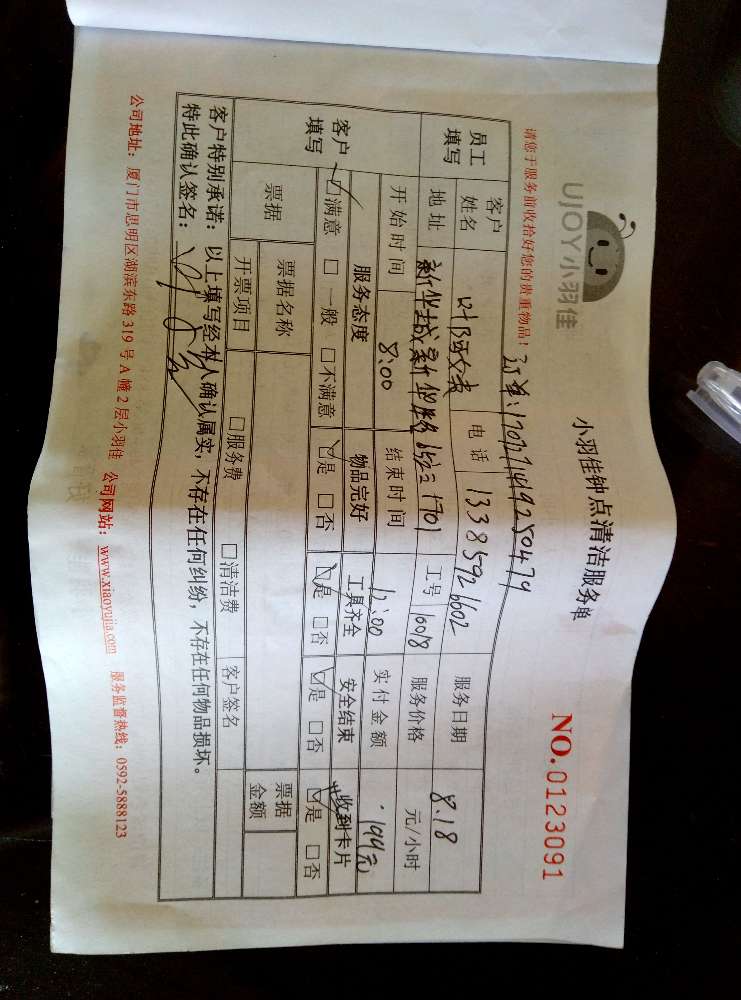 UJOY小羽佳
小羽佳钟点清洁服务单
NO.0123091
请您于服务前收拾好您的贵重物品!
订单:
员工填写
客户姓名
电话 13385926602
服务日期 8.18
地址
1701
工号 10018
服务价格 元/小时
开始时间 8:00
结束时间 12:00
实付金额 199元
客户填写
服务态度 物品完好 工具齐全 安全结束 收到卡片
☑满意 □一般 □不满意 ☑是 □否 ☑是 □否 ☑是 □否 ☑是 □否
票据 票据名称 票据金额
开票项目 □服务费 □清洁费 客户签名
客户特别承诺:以上填写经本人确认属实,不存在任何纠纷,不存在任何物品损坏。
特此确认签名:
公司地址:厦门市思明区湖滨东路319号A幢2层小羽佳 公司网站:www.xiaoyujia.com 服务监督热线:0592-5888123